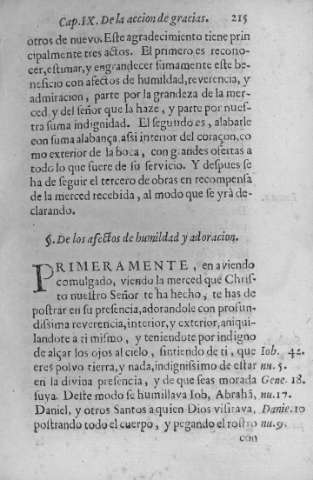 Cap. IX. De la accion de gracias. 215
otros de nuevo. Este agradecimiento tiene prin
cipalmente tres actos. El primero es recono-
cer, estimar, y engrandecer sumamente este be-
neficio con afectos de humildad, reverencia, y
admiracion, parte por la grandeza de la mer-
ced, y del señor que la haze, y parte por nues-
tra suma indignidad. El segundo es, alabarle
con suma alabança, assi interior del coraçon, co
mo exterior de la boca, con grandes ofertas a
todo lo que fuere de su servicio. Y despues se
ha de seguir el tercero de obras en recompensa
de la merced recebida, al modo que se yrà de-
clarando.
§. De los afectos de humildad y adoracion.
PRIMERAMENTE, en aviendo
comulgado, viendo la merced que Chris-
to nuestro Señor te ha hecho, te has de
postrar en su presencia, adorandole con profun-
dissima reverencia, interior, y exterior, aniqui-
landote a ti mismo, y teniendote por indigno
de alçar los ojos al cielo, sintiendo de ti, que Iob. 42.
eres polvo tierra, y nada, indignissimo de estar nu. 5.
en la divina presencia, y de que seas morada Gene. 18.
suya. Deste modo se humillava Iob, Abrahã, nu. 17.
Daniel, y otros Santos a quien Dios visitava, Danie. 10
postrando todo el cuerpo, y pegando el rostro nu. 9.
con